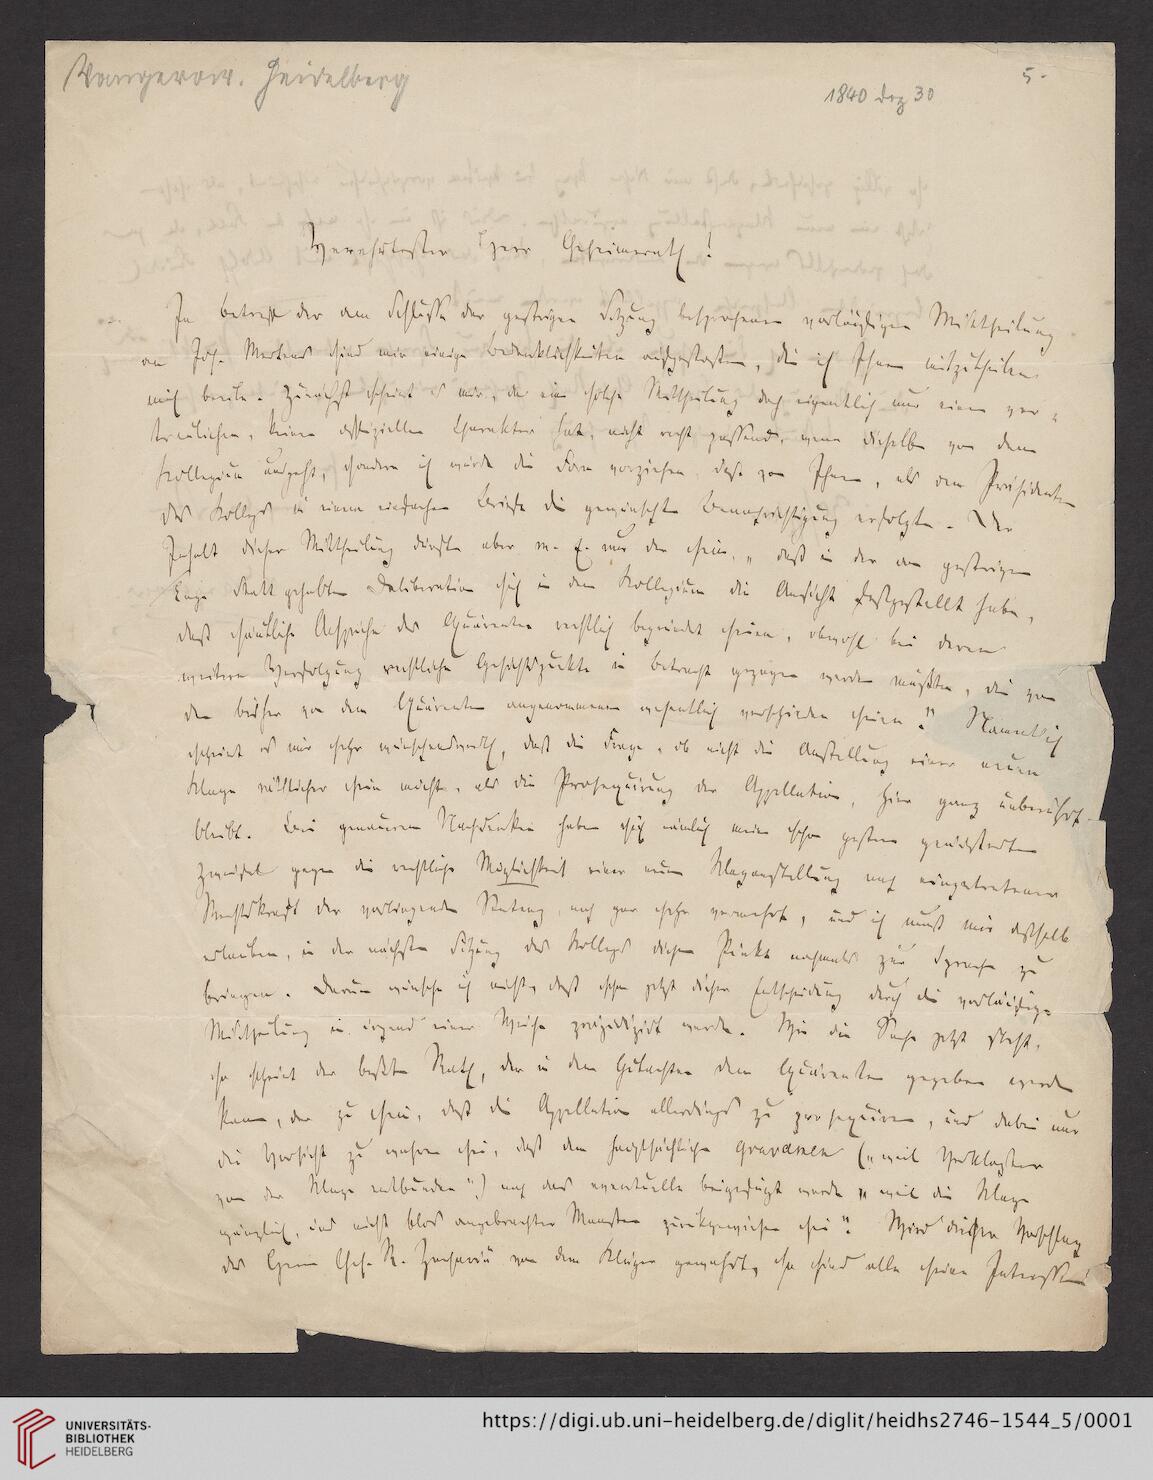 Vangerow. Heidelberg
5.
1840 Dez 30
Verehrtester Herr Geheimerath!
In Betreff der am Schlusse der gestrigen Sitzung besprochenen vorläufigen Mittheilung
an Joh. Martens sind mir einige Bedenklichkeiten aufgestoßen, die ich Ihnen mitzutheilen
mich beeile. Zunächst scheint es mir, da eine solche Mittheilung doch eigentlich nur einen ver-
traulichen, keinen offiziellen Charakter hat, nicht recht passend, wenn dieselbe von dem
Kollegium ausgeht, sondern ich würde die Form vorziehen, daß von Ihnen, als dem Präsidenten
des Kollegs in einem einfachen Briefe die gewünschte Benachrichtigung erfolgte. Der
Inhalt dieser Mittheilung dürfte aber m. E. nur der sein, „daß in der am gestrigen
Tage Statt gehabten Deliberation sich in dem Kollegium die Ansicht festgestellt habe,
daß sämtliche Ansprüche des Quärenten rechtlich begründet seien, obwohl bei deren
weiteren Verfolgung rechtliche Gesichtspunkte in Betracht gezogen werden müßten, die von
den bisher von dem Quärenten angenommenen wesentlich verschieden seien." Namentlich
scheint es mir sehr wünschenswerth, daß die Frage, ob nicht die Anstellung einer neuen
Klage räthlicher sein möchte, als die Prosequirung der Appellation, hier ganz unberührt
bleibt. Bei genauerem Nachdenken haben sich nämlich meine schon gestern geäußerten
Zweifel gegen die rechtliche Möglichkeit einer neuen Klaganstellung nach eingetretener
Rechtskraft der vorliegenden Sentenz noch gar sehr vermehrt, und ich muß mir deßhalb
erlauben, in der nächsten Sitzung des Kollegs diesen Punkt nochmals zur Sprache zu
bringen. Darum wünsche ich nicht, daß schon jetzt dieser Entscheidung durch die vorläufige
Mittheilung in irgend einer Weise präjudizirt werde. Wie die Sache jetzt steht,
so scheint der beste Rath, der in dem Gutachten dem Quärenten gegeben werden
kann, der zu sein, daß die Appellation allerdings zu prosequiren, und dabei nur
die Vorsicht zu wahren sei, daß dem hauptsächlichen Gravamen („weil Verklagter
von der Klage entbunden") noch das eventuelle beigefügt werde „weil die Klage
gänzlich, und nicht blos angebrachter Maaßen zurückgewiesen sei". Wird dieser Vorschlag
des Herrn Geh. R. Zachariä von dem Kläger gewahrt, so sind alle seine Interessen
UNIVERSITÄTS-
BIBLIOTHEK
HEIDELBERG
https://digi.ub.uni-heidelberg.de/diglit/heidhs2746-1544_5/0001